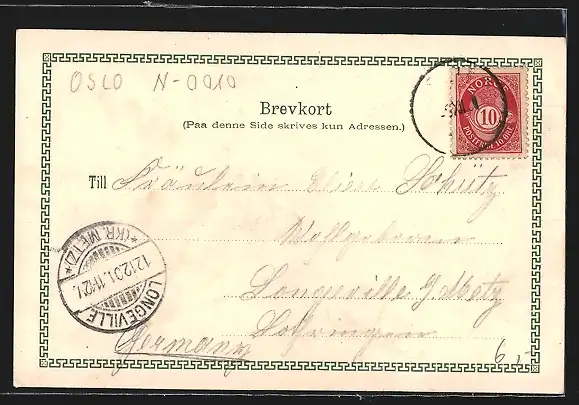 OSLO N-0010
NORGE
10
POSTFRIM. 10 ØRE
Brevkort
(Paa denne Side skrives kun Adressen.)
Till Fräulein Schütz
Wollgeboren
Longeville / Metz
Lothringen
Germany
LONGEVILLE
*(KR. METZ)*
12.12.01. 11-12V.
6,-